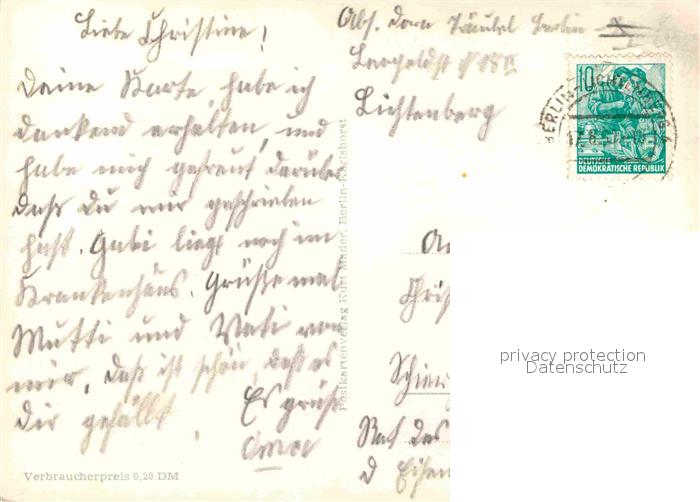 Liebe Christine!
Deine Karte, habe ich
dankend erhalten, und
habe mich gefreut darüber
daß Du mir geschrieben
hast. Gabi liegt noch im
Krankenhaus. Grüße mal
Mutti und Vati von
mir, daß ist schön, daß es
Dir gefällt.
Es grüßt
Oma
Verbraucherpreis 0,20 DM
Postkartenverlag Kurt Mader, Berlin-Karlshorst
Abs. Dora Berlin
Lichtenberg
10
BERLIN
DEUTSCHE
DEMOKRATISCHE REPUBLIK
An
Chris
Schier
Rat des
privacy protection
Datenschutz